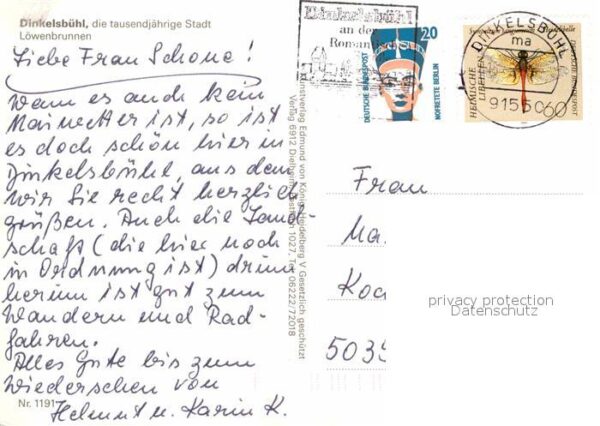 Dinkelsbühl, die tausendjährige Stadt
Löwenbrunnen
Liebe Frau Schone!
Wenn es auch kein
Maiwetter ist, so ist
es doch schön hier in
Dinkelsbühl, aus dem
wir Sie recht herzlich
grüßen. Auch die Land-
schaft (die hier noch
in Ordnung ist) drum
herum ist gut zum
Wandern und Rad-
fahren.
Alles Gute bis zum
Wiedersehen von
Helmut u. Karin K.
Nr. 1191
Kunstverlag Edmund von König, Heidelberg V Gesetzlich geschützt
Verlag 6912 Dielheim, Postfach 1027, Tel. 06222/72018
Dinkelsbühl
an der
Romant
20
DEUTSCHE BUNDESPOST
NOFRETETE BERLIN
DINKELSBÜHL
ma
9155
60
HEIMISCHE
LIBELLEN
DEUTSCHE BUNDESPOST
Frau
Ma.
Koc
5039
privacy protection
Datenschutz